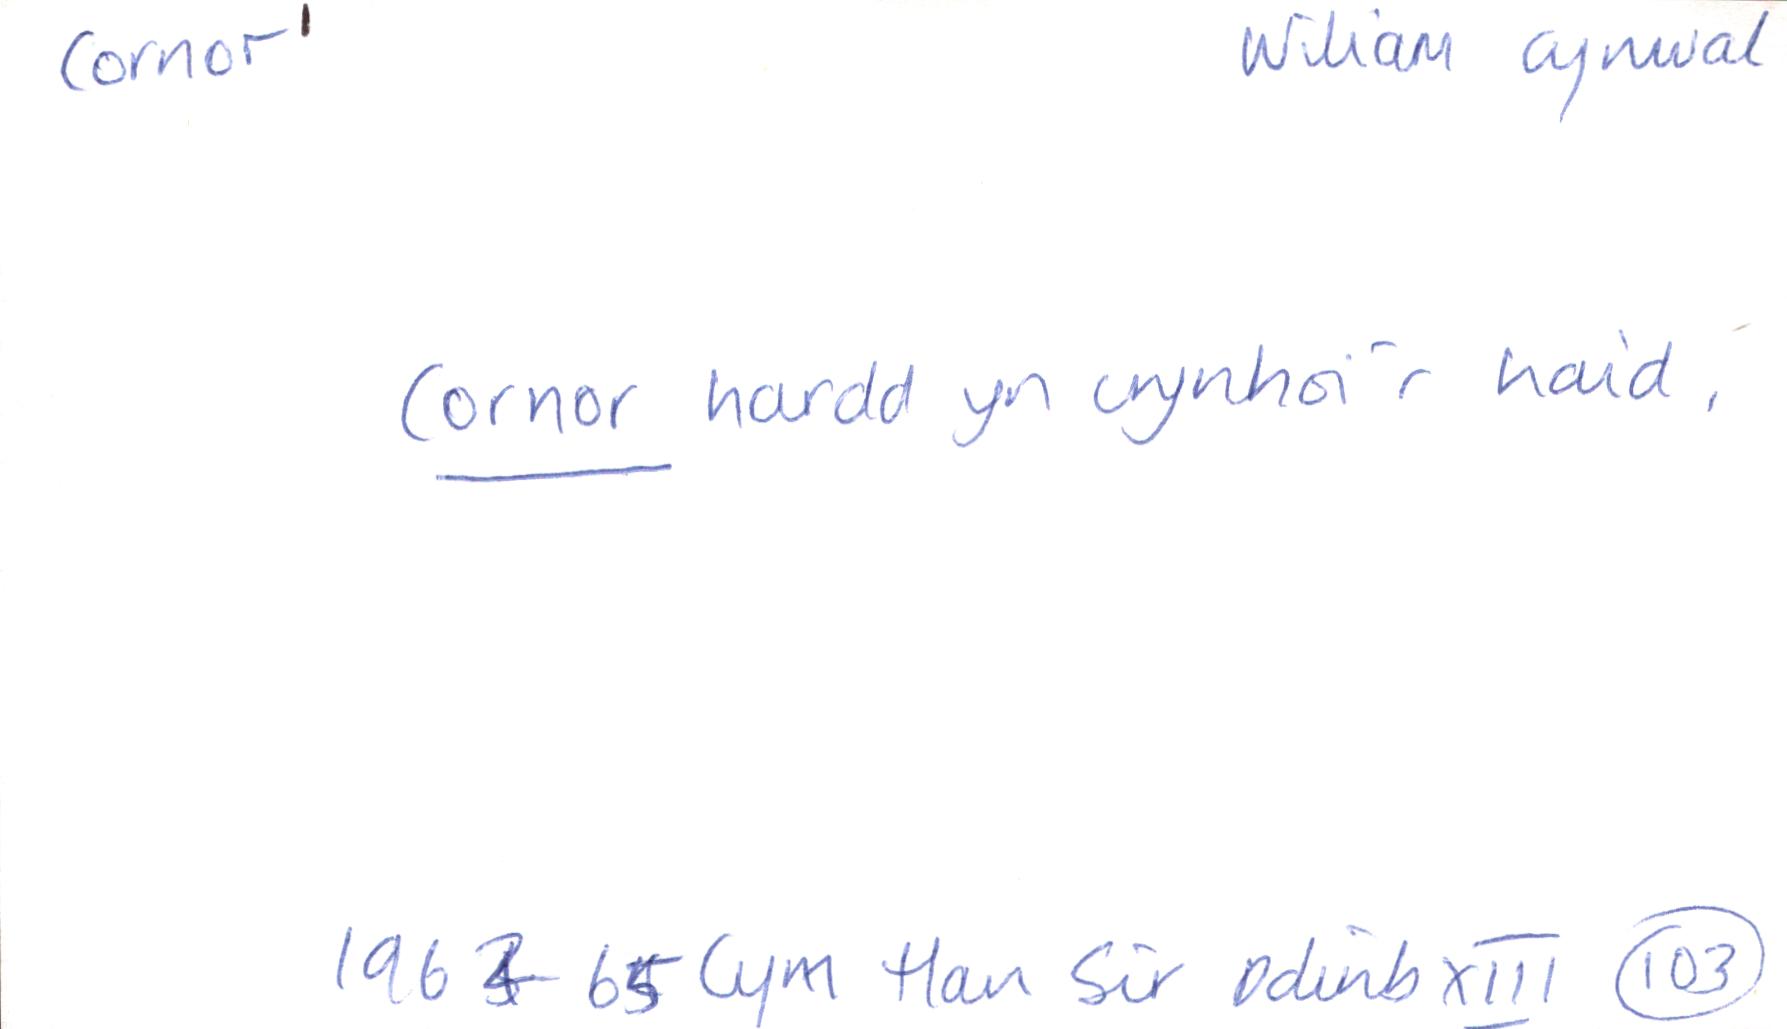 Cornor¹ Wiliam Cynwal
Cornor hardd yn crynhoi'r haid,
196 65 Cym Han Sir Ddinb XIII 103